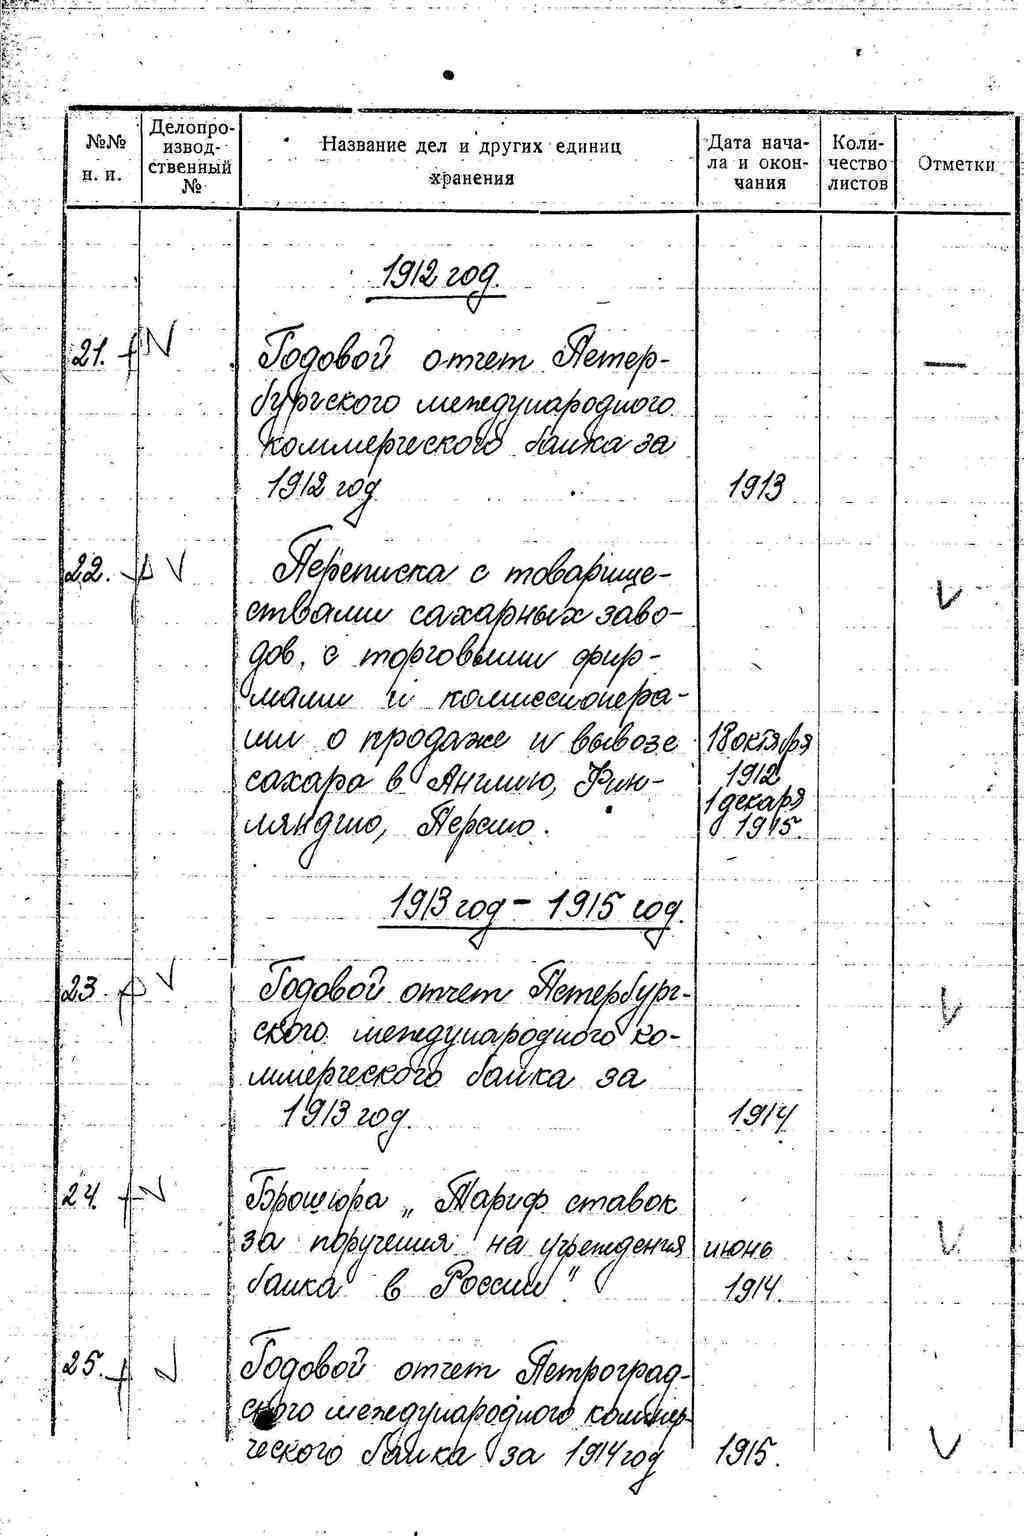 №№ п. п.
Делопро-
извод-
ственный
№
Название дел и других единиц
хранения
Дата нача-
ла и окон-
чания
Коли-
чество
листов
Отметки
1912 год.
21. Годовой отчет Петер-
бургского международного
коммерческого банка за
1912 год 1913
22. Переписка с товарище-
ствами сахарных заво-
дов, с торговыми фир-
мами и комиссионера-
ми о продаже и вывозе 18 октября
сахара в Англию, Фин- 1912
1 декаря
ляндию, Персию. 1915.
1913 год - 1915 год.
23. Годовой отчет Петербург-
ского международного ко-
ммерческого банка за
1913 год. 1914.
24. Брошюра „Тариф ставок
за поручения на учреждения июнь
банка в России". 1914.
25. Годовой отчет Петроград-
ского международного коммер-
ческого банка за 1914 год 1915.